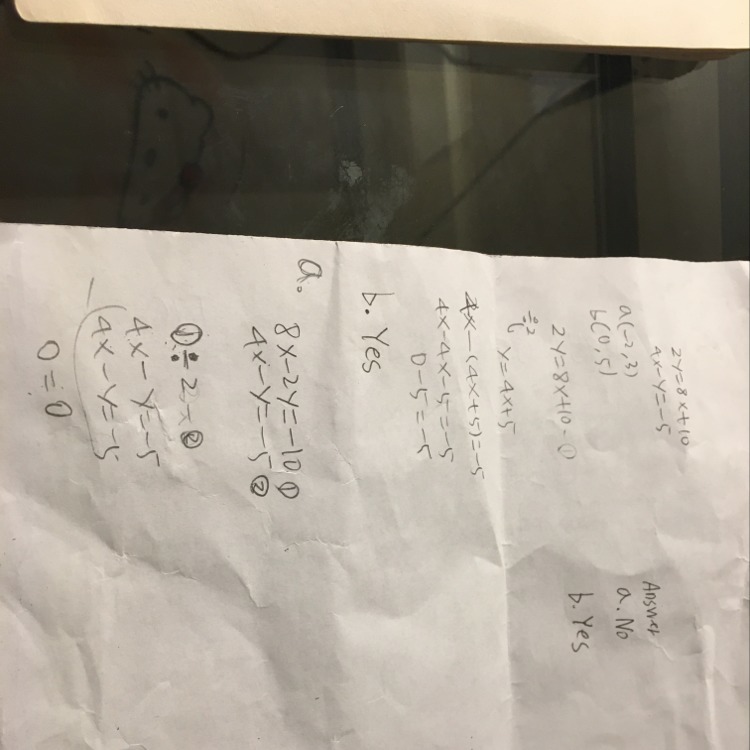 2y=8x+10
4x-y=-5
a(-2,3)
b(0,5)
2y=8x+10-①
÷2
y=4x+5
4x-(4x+5)=-5
4x-4x-5=-5
0-5=-5
b. Yes
a.
8x-2y=-10①
4x-y=-5②
①÷2-②
4x-y=-5
-(4x-y=-5
0=0
Answer
a. No
b. Yes